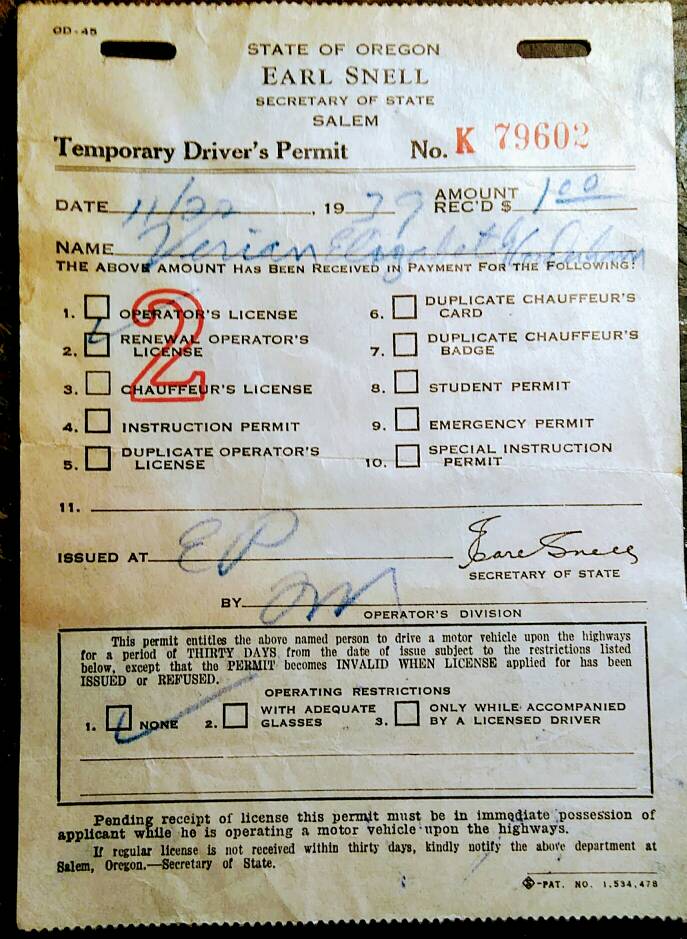 OD-45
STATE OF OREGON
EARL SNELL
SECRETARY OF STATE
SALEM
Temporary Driver's Permit No. K 79602
DATE 11/22, 1939 AMOUNT REC'D $ 1.00
NAME Verian Elizabeth
THE ABOVE AMOUNT HAS BEEN RECEIVED IN PAYMENT FOR THE FOLLOWING:
2
1. OPERATOR'S LICENSE
2. RENEWAL OPERATOR'S LICENSE
3. CHAUFFEUR'S LICENSE
4. INSTRUCTION PERMIT
5. DUPLICATE OPERATOR'S LICENSE
6. DUPLICATE CHAUFFEUR'S CARD
7. DUPLICATE CHAUFFEUR'S BADGE
8. STUDENT PERMIT
9. EMERGENCY PERMIT
10. SPECIAL INSTRUCTION PERMIT
11.
ISSUED AT EP Earl Snell
SECRETARY OF STATE
BY
OPERATOR'S DIVISION
This permit entitles the above named person to drive a motor vehicle upon the highways
for a period of THIRTY DAYS from the date of issue subject to the restrictions listed
below, except that the PERMIT becomes INVALID WHEN LICENSE applied for has been
ISSUED or REFUSED.
OPERATING RESTRICTIONS
1. NONE 2. WITH ADEQUATE GLASSES 3. ONLY WHILE ACCOMPANIED BY A LICENSED DRIVER
Pending receipt of license this permit must be in immediate possession of
applicant while he is operating a motor vehicle upon the highways.
If regular license is not received within thirty days, kindly notify the above department at
Salem, Oregon.—Secretary of State.
-PAT. NO. 1,534,478